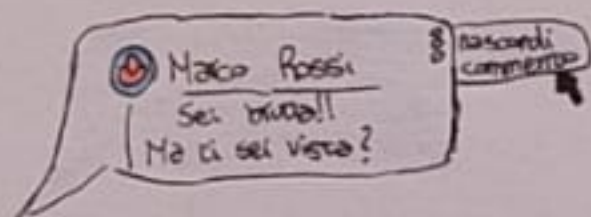 Marco Rossi
Sei brutta!!
Ma ti sei vista?
nascondi
commento